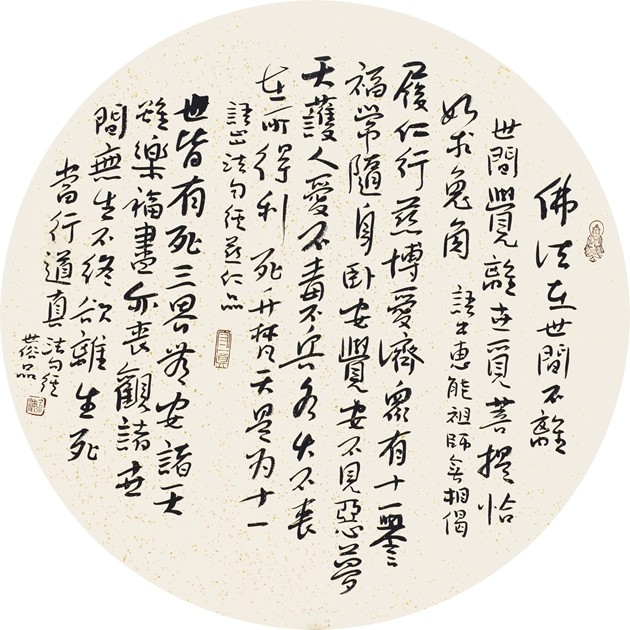 佛法在世間不離
世間覺離世覓菩提恰
如求兔角 語出惠能祖師無相偈
履仁行慈博愛濟眾有十一譽
福常隨身卧安覺安不見惡夢
天護人愛不毒不兵水火不喪
在所得利 死升梵天是为十一
語出法句經慈仁品
世皆有死三界无安諸天
雖樂福盡亦喪觀諸世
間無生不終欲離生死
當行道真 法句經
世品